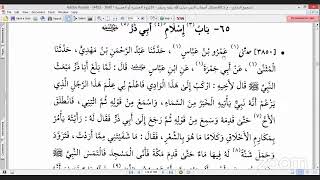 Adobe Reader
٦٥- بَابُ (٣) إِسْلَامِ (٤) أَبِي ذَرٍّ
• [٣٨٥٠] حدثني عَمْرُو بْنُ عَبَّاسٍ (١)، حَدَّثَنَا عَبْدُ الرَّحْمَنِ بْنُ مَهْدِيٍّ، حَدَّثَنَا
الْمُثَنَّى، عَنْ أَبِي جَمْرَةَ، عَنِ ابْنِ عَبَّاسٍ قَالَ: لَمَّا بَلَغَ أَبَا ذَرٍّ مَبْعَثُ
النَّبِيِّ ﷺ قَالَ لِأَخِيهِ: ارْكَبْ إِلَى هَذَا الْوَادِي فَاعْلَمْ لِي عِلْمَ هَذَا الرَّجُلِ الَّذِي
يَزْعُمُ أَنَّهُ نَبِيٌّ يَأْتِيهِ الْخَبَرُ مِنَ السَّمَاءِ، وَاسْمَعْ مِنْ قَوْلِهِ ثُمَّ ائْتِنِي، فَانْطَلَقَ
حَتَّى قَدِمَهُ وَسَمِعَ مِنْ قَوْلِهِ ثُمَّ رَجَعَ إِلَى أَبِي ذَرٍّ فَقَالَ لَهُ: رَأَيْتُهُ يَأْمُرُ
بِمَكَارِمِ الْأَخْلَاقِ وَكَلَامًا مَا هُوَ بِالشِّعْرِ، فَقَالَ: مَا شَفَيْتَنِي مِمَّا أَرَدْتُ، فَتَزَوَّدَ
وَحَمَلَ شَنَّةً لَهُ فِيهَا مَاءٌ حَتَّى قَدِمَ مَكَّةَ فَأَتَى الْمَسْجِدَ فَالْتَمَسَ النَّبِيَّ